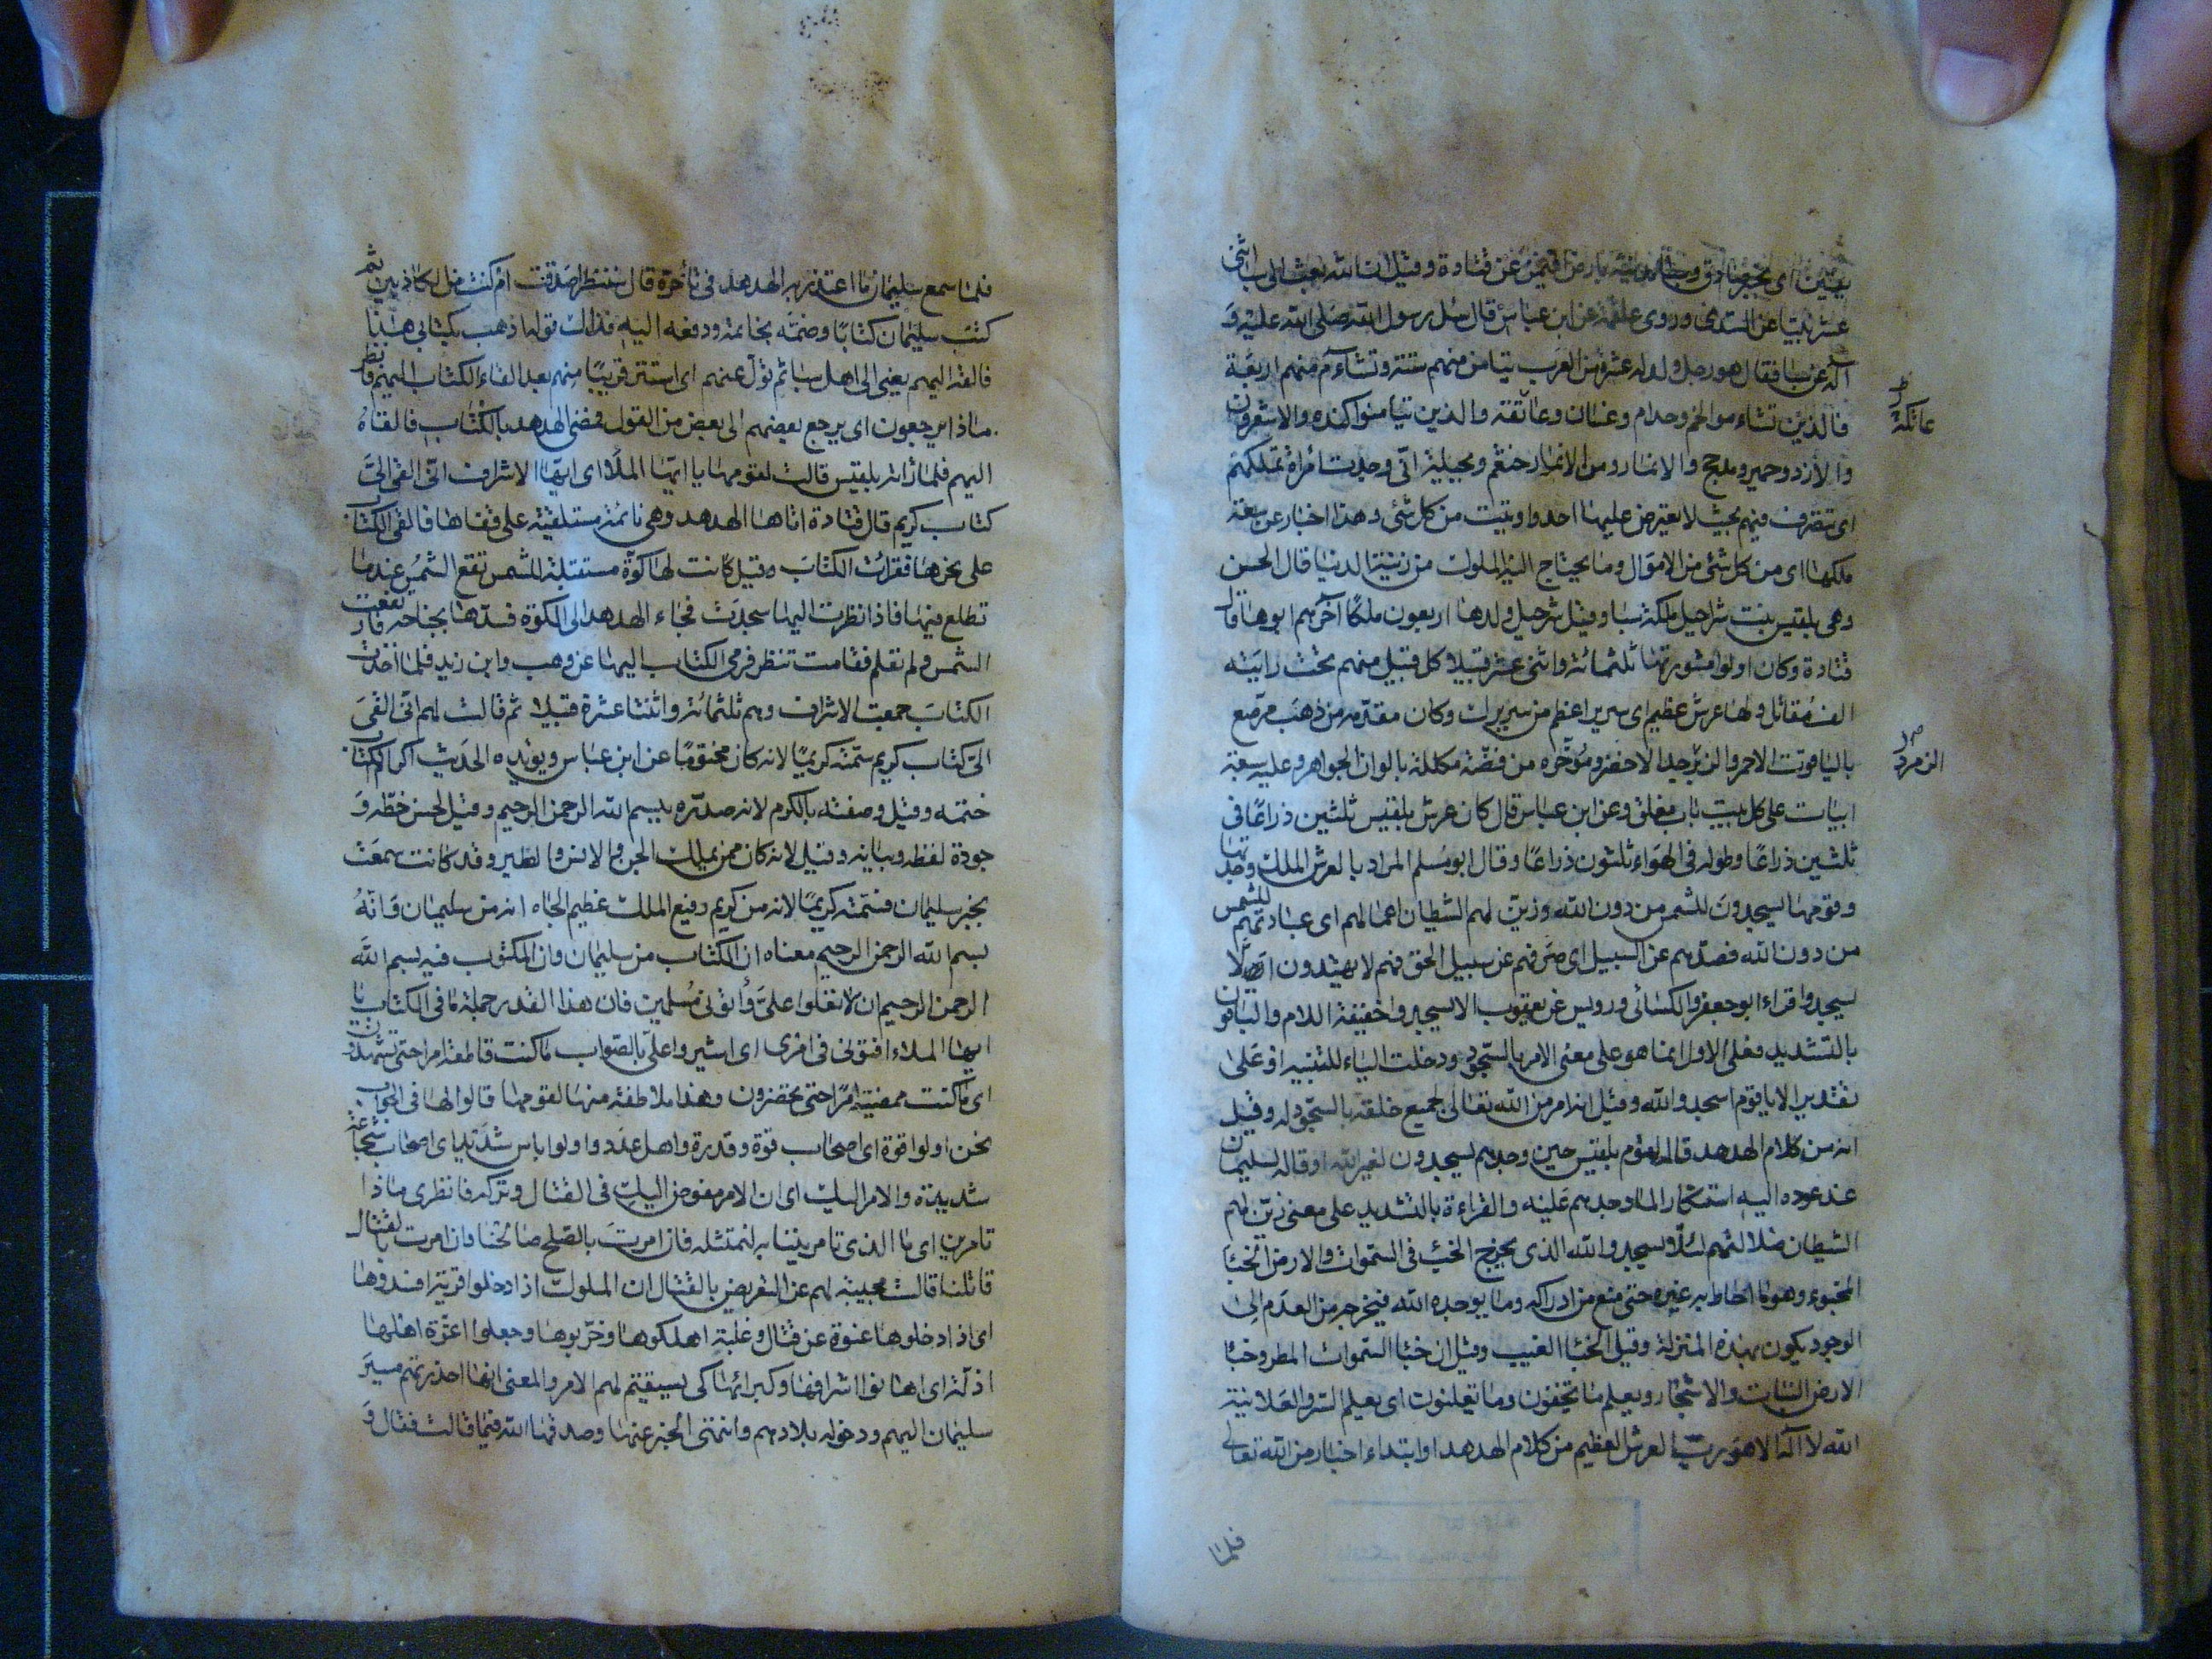 يقين اى بخبر صادق وسبا مدينة بارض اليمن عن قتادة وقيل ان الله بعث الى سبا اثنى
عشر نبيا عن السدى وروى علقمة عن ابن عباس قال سئل رسول الله صلى الله عليه و
آله عن سبا فقال هو رجل ولد له عشرة من العرب تيامن منهم ستة وتشاءم منهم اربعة
فالذين تشاءموا لخم وجذام وغسان وعاتقة والذين تيامنوا كنده والاشعرون
عاتكة
والازد وحمير ومذجج والانمار ومن الانمار خثعم وبجيلة انى وجدت امراة تملكهم
اى تتصرف فيهم بحيث لا يعترض عليها احد واوتيت من كل شئ وهذا اخبار عن سعة
ملكها اى من كل شئ من الاموال وما يحتاج اليه الملوك من زينة الدنيا قال الحسن
وهى بلقيس بنت شراحيل ملكة سبا وقيل شرحيل ولدها اربعون ملكا آخرهم ابوها قال
قتادة وكان اولوا مشورتها ثلثمائة واثنى عشر قبيلا كل قبيل منهم تحت رايته
الف مقاتل ولها عرش عظيم اى سرير اعظم من سريرك وكان مقدمه من ذهب مرصع
بالياقوت الاحمر والزبرجد الاخضر ومؤخره من فضة مكللة بالوان الجواهر وعليه سبعة
الزمرد
ابيات على كل بيت باب مغلق وعن ابن عباس قال كان عرش بلقيس ثلثين ذراعا فى
ثلثين ذراعا وطوله فى الهواء ثلثون ذراعا وقال ابو مسلم المراد بالعرش الملك وجدتها
وقومها يسجدون للشمس من دون الله وزين لهم الشيطان اعمالهم اى عبادتهم للشمس
من دون الله فصدهم عن السبيل اى صرفهم عن سبيل الحق فهم لا يهتدون الا
يسجدوا قراء ابو جعفر والكسائى ورويس عن يعقوب الا يسجدوا خفيفة اللام والباقون
بالتشديد فعلى الاول انما هو على معنى الامر بالسجود ودخلت الياء للتنبيه او على
تقدير الا يا قوم اسجدوا لله وقيل انه امر من الله تعالى لجميع خلقه بالسجود له وقيل
انه من كلام الهدهد قاله لقوم بلقيس حين وجدهم يسجدون لغير الله او قاله لسليمان
عند عوده اليه استنكارا لما وجدهم عليه والقراءة بالتشديد على معنى زين لهم
الشيطان ضلالتهم لئلا يسجدوا لله الذى يخرج الخبء فى السموات والارض الخبأ
المخبوء وهو ما احاط به غيره حتى منع من ادراكه وما يوجده الله فيخرجه من العدم الى
الوجود يكون بهذه المنزلة وقيل الخبأ الغيب وقيل ان خبأ السموات المطر وخبأ
الارض النبات والاشجار ويعلم ما تخفون وما تعلنون اى يعلم السر والعلانية
الله لا اله الا هو رب العرش العظيم من كلام الهدهد او ابتداء اخبار من الله تعالى
فلما
فلما سمع سليمان ما اعتذر به الهدهد فى تأخره قال سننظر اصدقت ام كنت من الكاذبين ثم
كتب سليمان كتابا وختمه بخاتمه ودفعه اليه فذلك قوله اذهب بكتابى هذا
فالقه اليهم يعنى الى اهل سبا ثم تول عنهم اى استتر قريبا منهم بعد القاء الكتاب اليهم فانظر
ماذا يرجعون اى يرجع بعضهم الى بعض من القول فمضى الهدهد بالكتاب فالقاه
اليهم فلما راته بلقيس قالت لقومها يا ايها الملأ اى ايها الاشراف انى القى الى
كتاب كريم قال قتادة اتاها الهدهد وهى نائمة مستلقية على قفاها فالقى الكتاب
على نحرها فقرات الكتاب وقيل كانت لها كوة مستقبلة للشمس تقع الشمس عندما
تطلع فيها فاذا نظرت اليها سجدت فجاء الهدهد الى الكوة فسدها بجناحه فارتفعت
الشمس ولم تعلم فقامت تنظر فرمى الكتاب اليها عن وهب وابن زيد فلما اخذت
الكتاب جمعت الاشراف وهم ثلثمائة واثنتا عشرة قبيلا ثم قالت لهم انى القى
الى كتاب كريم سمته كريما لانه كان مختوما عن ابن عباس ويؤيده الحديث اكرام الكتاب
ختمه وقيل وصفته بالكرم لانه صدره ببسم الله الرحمن الرحيم وقيل لحسن خطه و
جودة لفظه وبيانه وقيل لانه كان ممن يملك الجن والانس والطير وقد كانت سمعت
بخبر سليمان فسمته كريما لانه من كريم رفيع الملك عظيم الجاه انه من سليمان وانه
بسم الله الرحمن الرحيم معناه ان الكتاب من سليمان وان المكتوب فيه بسم الله
الرحمن الرحيم ان لا تعلوا على وأتونى مسلمين فان هذا القدر جملة ما فى الكتاب يا
ايها الملاء افتونى فى امرى اى اشيروا على بالصواب ما كنت قاطعة امرا حتى تشهدون
اى ما كنت ممضية امرا حتى تحضرون وهذا ملاطفة منها لقومها قالوا لها فى الجواب
نحن اولوا قوة اى اصحاب قوة وقدرة واهل عدد واولوا باس شديد اى اصحاب شجاعة
شديدة والامر اليك اى ان الامر مفوض اليك فى القتال وتركه فانظرى ماذا
تامرين اى ما الذى تامريننا به لنمتثله فان امرت بالصلح صالحنا وان امرت بالقتال
قاتلنا قالت مجيبة لهم عن التعريض بالقتال ان الملوك اذا دخلوا قرية افسدوها
اى اذا دخلوها عنوة عن قتال وغلبة اهلكوها وخربوها وجعلوا اعزة اهلها
اذلة اى اهانوا اشرافها وكبرائها كى يستقيم لهم الامر والمعنى انها حذرتهم مسير
سليمان اليهم ودخوله بلادهم وانتهى الخبر عنها وصدقها الله فيما قالت فقال و